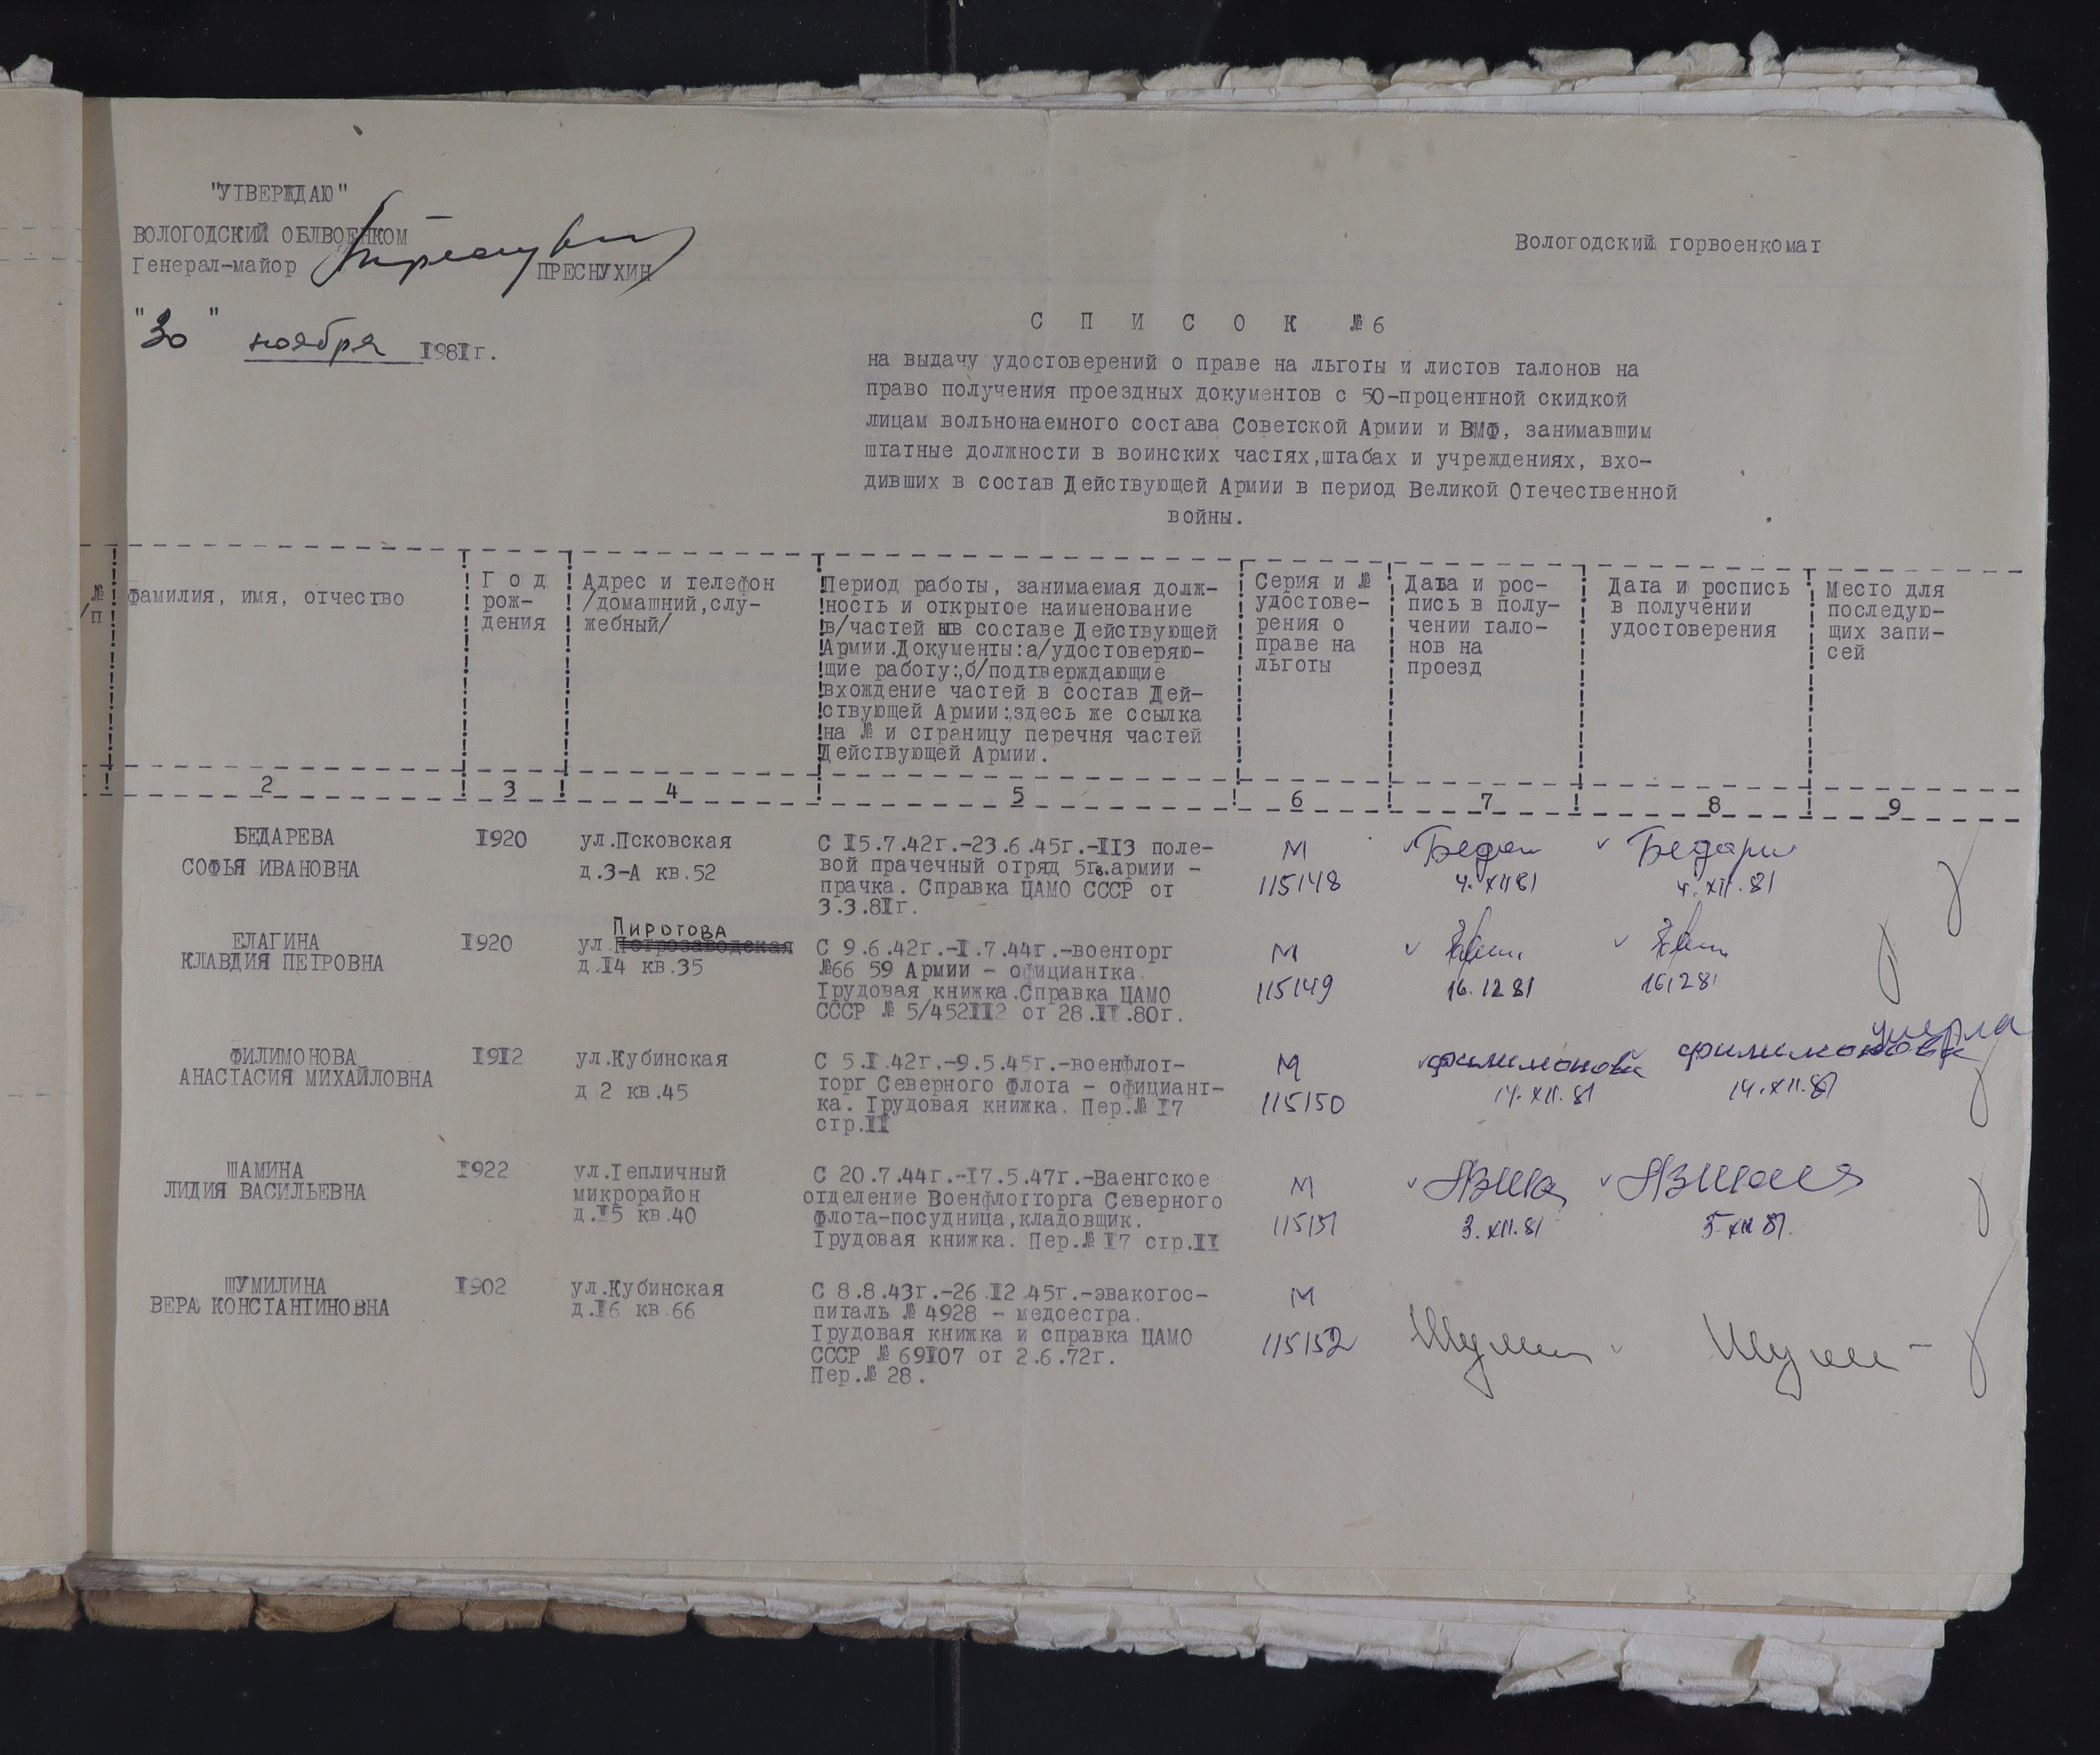 "УТВЕРЖДАЮ"
ВОЛОГОДСКИЙ ОБЛВОЕНКОМ
Генерал-майор ПРЕСНУХИН
"30" ноября 1981г.
Вологодский горвоенкомат
С П И С О К №6
на выдачу удостоверений о праве на льготы и листов талонов на
право получения проездных документов с 50-процентной скидкой
лицам вольнонаемного состава Советской Армии и ВМФ, занимавшим
штатные должности в воинских частях,штабах и учреждениях, вхо-
дивших в состав Действующей Армии в период Великой Отечественной
войны.
№
/п
Фамилия, имя, отчество
Г о д
рож-
дения
Адрес и телефон
/домашний,слу-
жебный/
Период работы, занимаемая долж-
ность и открытое наименование
в/частей в составе Действующей
Армии.Документы:а/удостоверяю-
щие работу:,б/подтверждающие
вхождение частей в состав Дей-
ствующей Армии:,здесь же ссылка
на № и страницу перечня частей
Действующей Армии.
Серия и №
удостове-
рения о
праве на
льготы
Дата и рос-
пись в полу-
чении тало-
нов на
проезд
Дата и роспись
в получении
удостоверения
Место для
последую-
щих запи-
сей
2 3 4 5 6 7 8 9
БЕДАРЕВА
СОФЬЯ ИВАНОВНА
1920
ул.Псковская
д.3-А кв.52
С 15.7.42г.-23.6.45г.-113 поле-
вой прачечный отряд 5гв.армии -
прачка. Справка ЦАМО СССР от
3.3.81г.
М
115148
4.XII 81
4.XII.81
ЕЛАГИНА
КЛАВДИЯ ПЕТРОВНА
1920
Пирогова
ул.Петрозаводская
д.14 кв.35
С 9.6.42г.-1.7.44г.-военторг
№66 59 Армии - официантка.
Трудовая книжка.Справка ЦАМО
СССР № 5/452112 от 28.11.80г.
М
115149
16.12 81
16.12 81
ФИЛИМОНОВА
АНАСТАСИЯ МИХАЙЛОВНА
1912
ул.Кубинская
д 2 кв.45
С 5.1.42г.-9.5.45г.-военфлот-
торг Северного Флота - официант-
ка. Трудовая книжка. Пер.№ 17
стр.11
М
115150
Филимонова
14.XII.81
Филимонова
14.XII.81
умерла
ШАМИНА
ЛИДИЯ ВАСИЛЬЕВНА
1922
ул.Тепличный
микрорайон
д.15 кв.40
С 20.7.44г.-17.5.47г.-Ваенгское
отделение Военфлотторга Северного
Флота-посудница,кладовщик.
Трудовая книжка. Пер.№ 17 стр.11
М
115151
3.XII.81
3.XII 81.
ШУМИЛИНА
ВЕРА КОНСТАНТИНОВНА
1902
ул.Кубинская
д.16 кв.66
С 8.8.43г.-26.12.45г.-эвакогос-
питаль № 4928 - медсестра.
Трудовая книжка и справка ЦАМО
СССР № 69107 от 2.6.72г.
Пер.№ 28.
М
115152